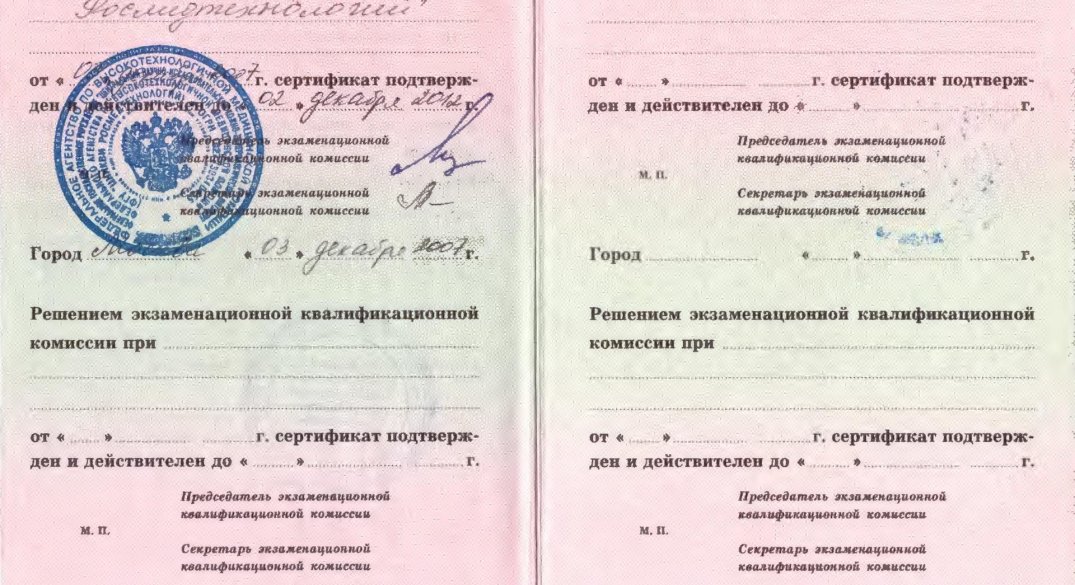 Росмедтехнологий"
от « 03 2007 г. сертификат подтверж-
ден и действителен до « 02 » декабря 2012 г.
Председатель экзаменационной
квалификационной комиссии
Секретарь экзаменационной
квалификационной комиссии
Город Москва « 03 » декабря 2007 г.
Решением экзаменационной квалификационной
комиссии при
от « » г. сертификат подтверж-
ден и действителен до « » г.
Председатель экзаменационной
квалификационной комиссии
М. П.
Секретарь экзаменационной
квалификационной комиссии
от « » г. сертификат подтверж-
ден и действителен до « » г.
Председатель экзаменационной
квалификационной комиссии
М. П.
Секретарь экзаменационной
квалификационной комиссии
Город « » г.
Решением экзаменационной квалификационной
комиссии при
от « » г. сертификат подтверж-
ден и действителен до « » г.
Председатель экзаменационной
квалификационной комиссии
М. П.
Секретарь экзаменационной
квалификационной комиссии
ФЕДЕРАЛЬНОЕ АГЕНТСТВО ПО ВЫСОКОТЕХНОЛОГИЧНОЙ МЕДИЦИНСКОЙ